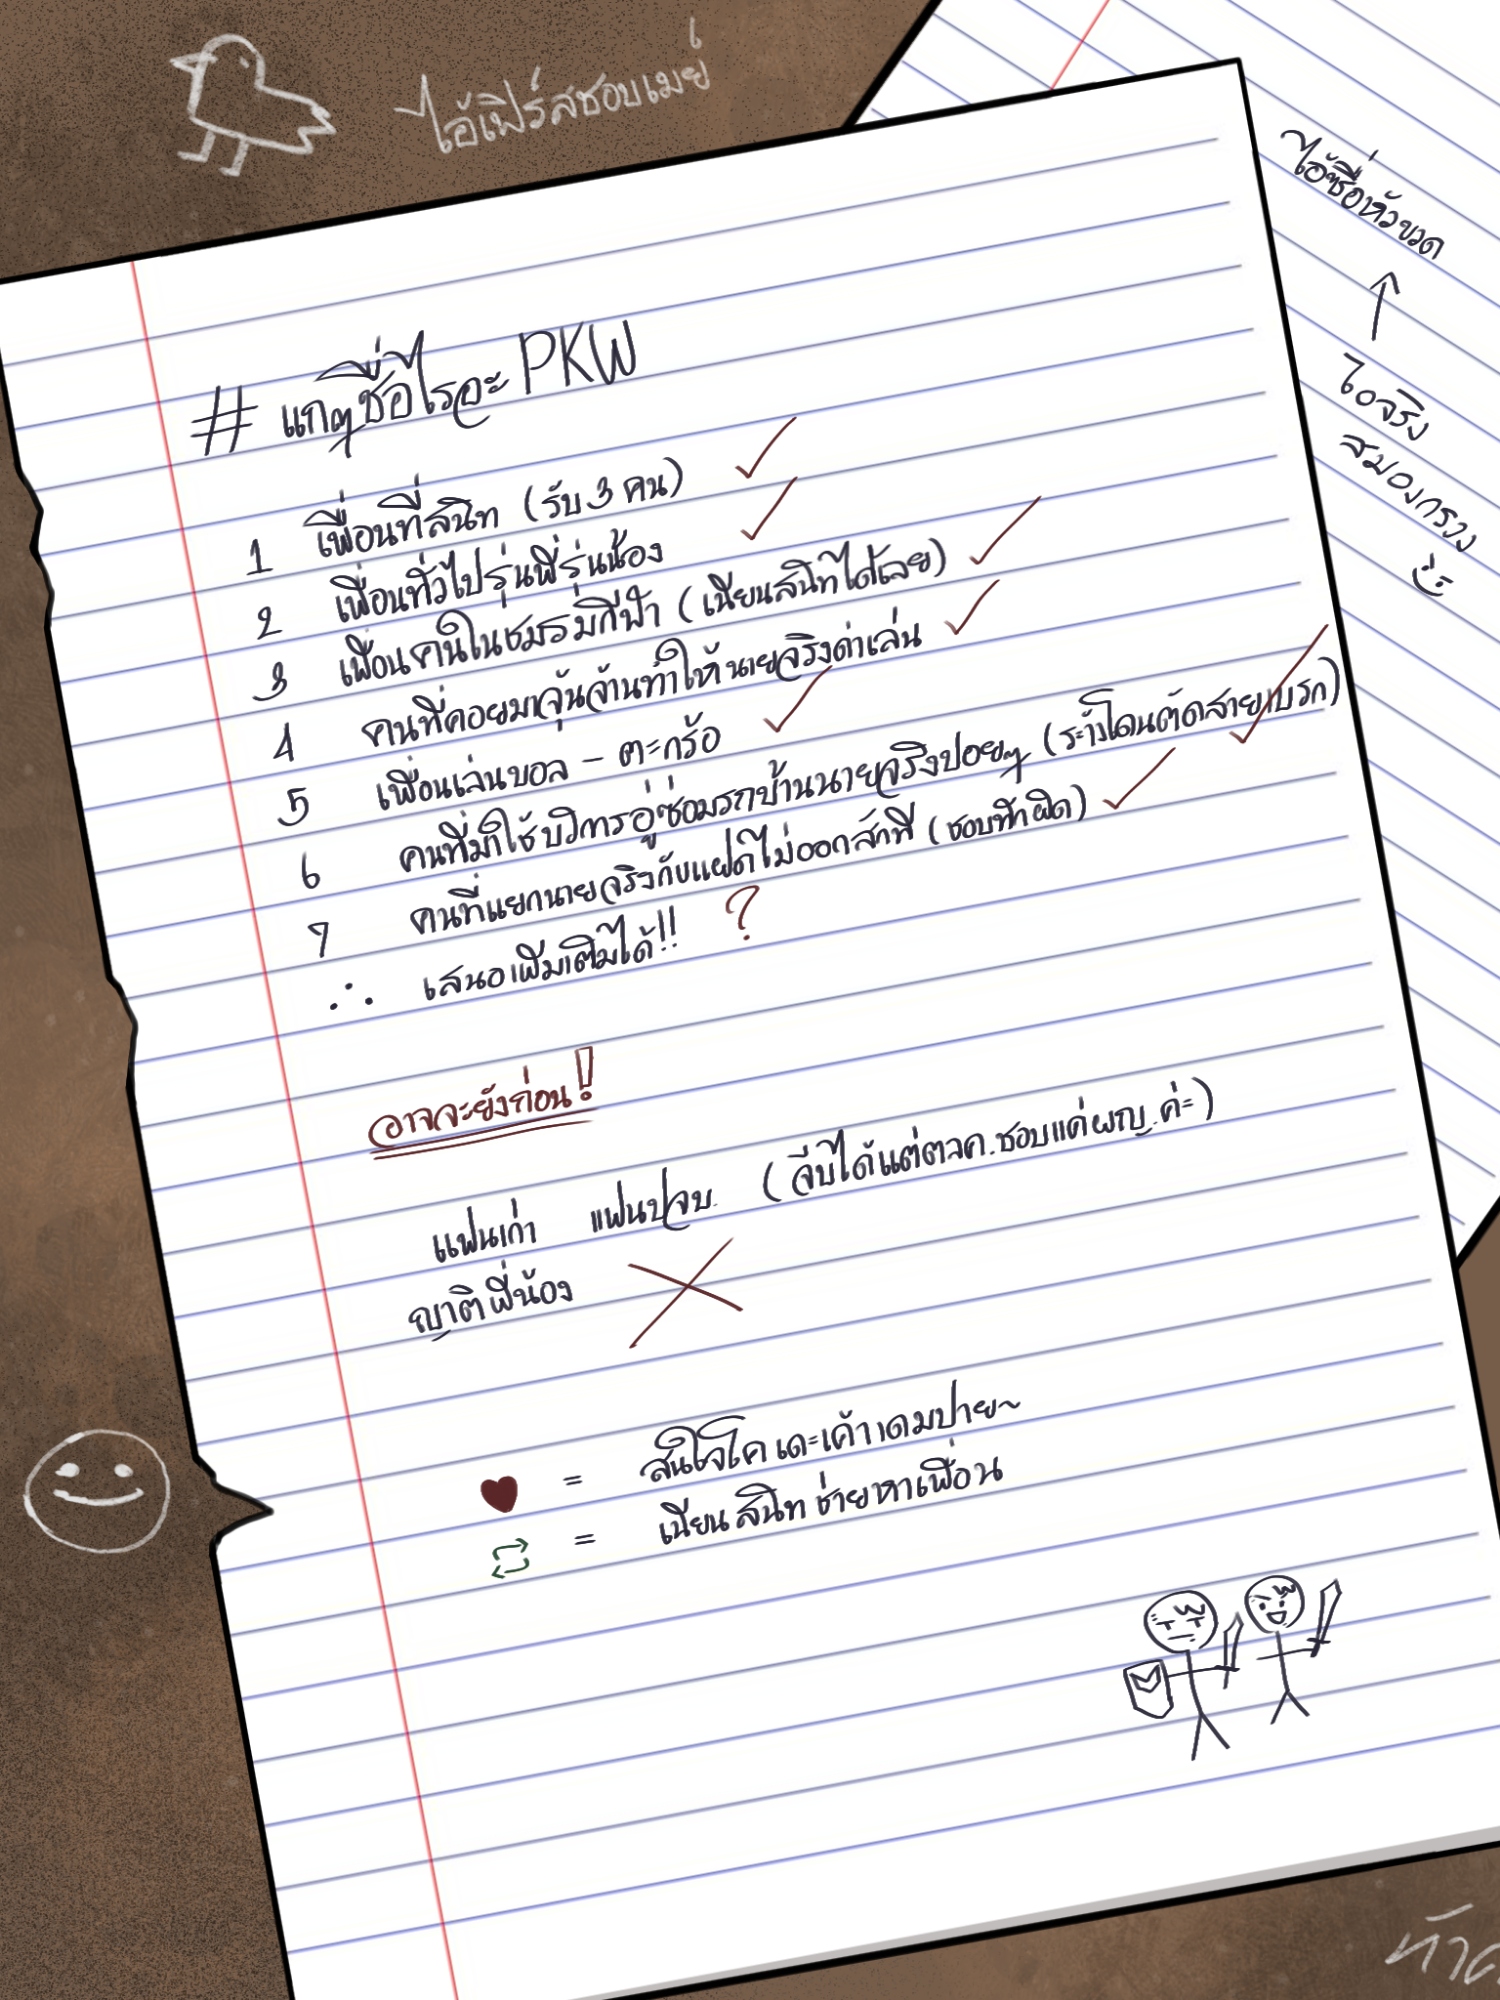 ไอ้เฟิร์สชอบเมย์
# แกๆชื่อไรอะ PKW
1 เพื่อนที่สนิท (รับ 3 คน)
2 เพื่อนทั่วไปรุ่นพี่รุ่นน้อง
3 เพื่อนคนในชมรมกีฬา (เนียนสนิทได้เลย)
4 คนที่คอยมาจุ้นจ้านทำให้นายจริงด่าเล่น
5 เพื่อนเล่นบอล - ตะกร้อ
6 คนที่มาใช้บริการอู่ซ่อมรถบ้านนายจริงบ่อยๆ (ระวังโดนตัดสายเบรก)
7 คนที่แยกนายจริงกับแฝดไม่ออกสักที (ชอบทักผิด)
∴ เสนอเพิ่มเติมได้!! ?
อาจจะยังก่อน!
แฟนเก่า แฟนปจบ. (จีบได้แต่ตลค.ชอบแค่ผญ.ค่ะ)
ญาติพี่น้อง
= สนใจโค เดะเค้าเดมปาย~
= เนียนสนิท ช่วยหาเพื่อน
ไอ้ซื่อหัวขวด
↑
ไอจริง
สมองกลวง